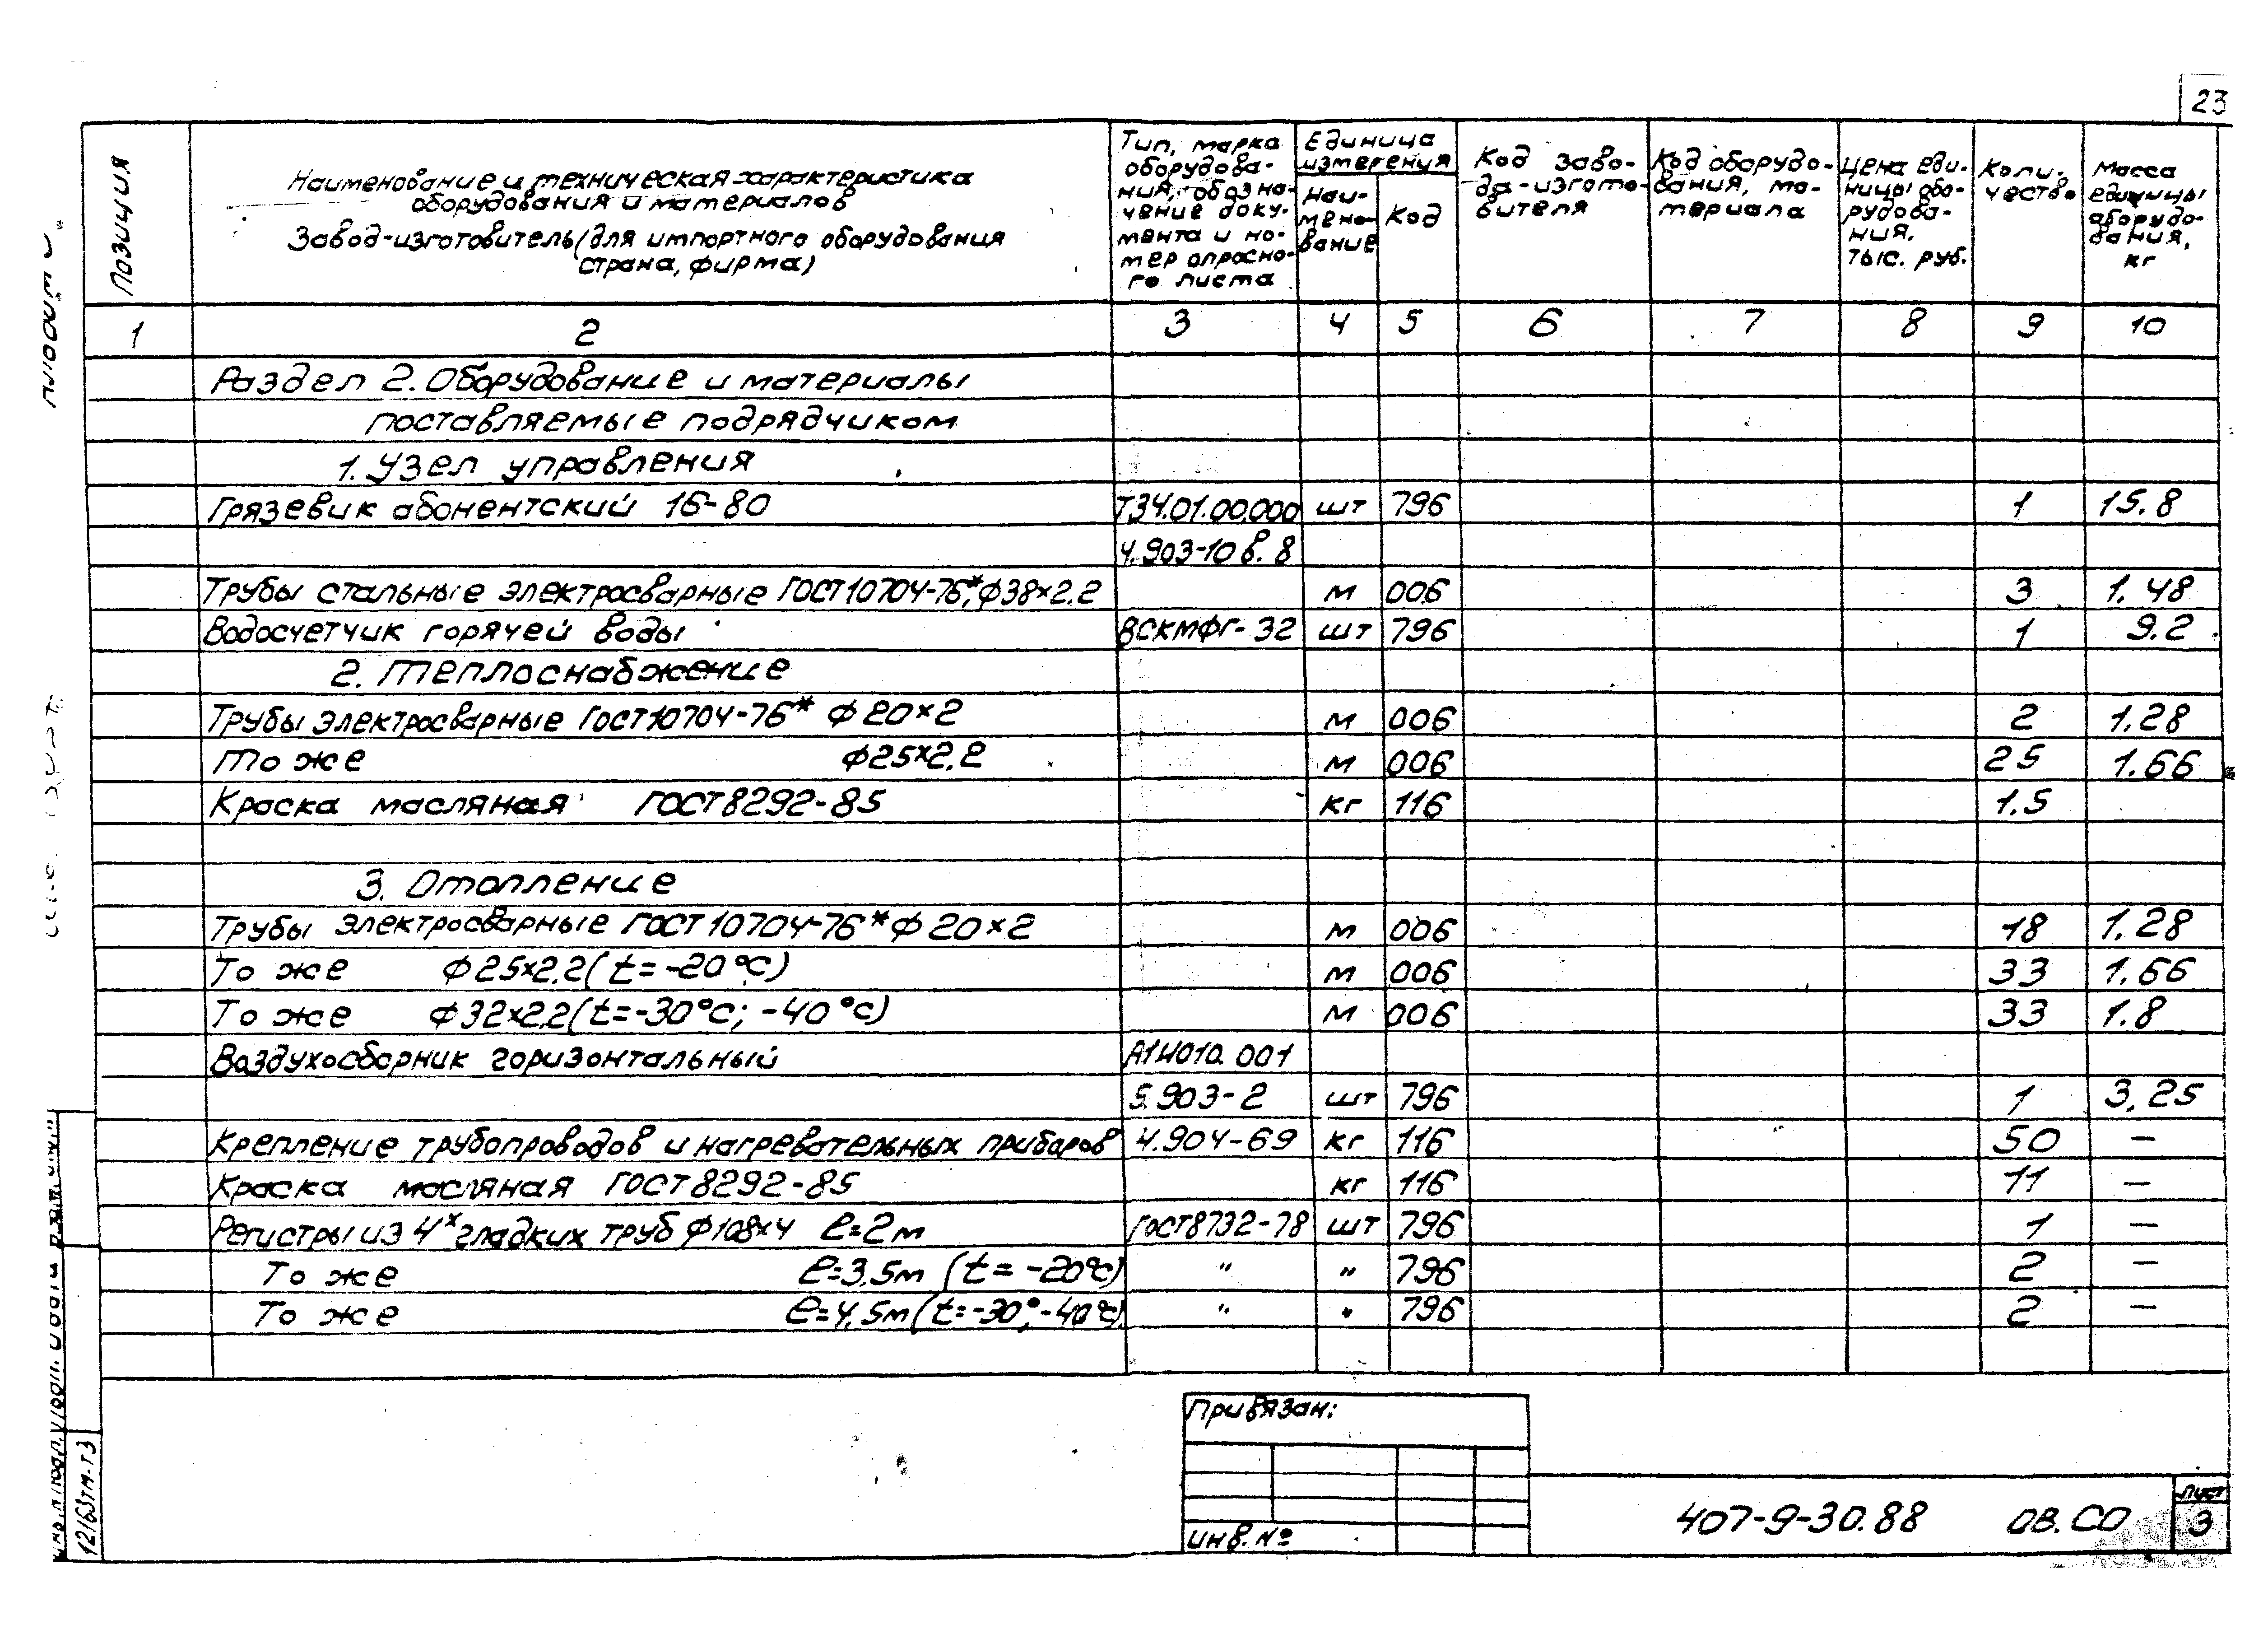 23
Позиция
Наименование и техническая характеристика
оборудования и материалов
Завод-изготовитель (для импортного оборудования
страна, фирма)
Тип, марка
оборудова-
ния, обозна-
чение доку-
мента и но-
мер опросно-
го листа
Единица
измерения
Наи-
мено-
вание
Код
Код заво-
да-изгото-
вителя
Код оборудо-
вания, ма-
териала
Цена еди-
ницы обо-
рудова-
ния,
тыс. руб.
Коли-
чество
Масса
единицы
оборудо-
вания,
кг
1 2 3 4 5 6 7 8 9 10
Раздел 2. Оборудование и материалы
поставляемые подрядчиком
1. Узел управления
Грязевик абонентский 16-80 Т34.01.00.000 шт 796 1 15.8
4.903-10 в. 8
Трубы стальные электросварные ГОСТ 10704-76*, ф38×2.2 м 006 3 1.48
Водосчетчик горячей воды ВСКМФГ-32 шт 796 1 9.2
2. Теплоснабжение
Трубы электросварные ГОСТ 10704-76* ф20×2 м 006 2 1.28
То же ф25×2.2 м 006 25 1.66
Краска масляная ГОСТ 8292-85 кг 116 1.5
3. Отопление
Трубы электросварные ГОСТ 10704-76* ф20×2 м 006 18 1.28
То же ф25×2.2 (t=-20°С) м 006 33 1.66
То же ф32×2.2 (t=-30°С; -40°С) м 006 33 1.8
Воздухосборник горизонтальный А1И010.001
5.903-2 шт 796 1 3,25
Крепление трубопроводов и нагревательных приборов 4.904-69 кг 116 50 —
Краска масляная ГОСТ 8292-85 кг 116 11 —
Регистры из 4х гладких труб ф108×4 ℓ=2м ГОСТ 8732-78 шт 796 1 —
То же ℓ=3.5м (t=-20°С) " " 796 2 —
То же ℓ=4.5м (t=-30°; -40°С) " " 796 2 —
Привязан:
Инв. №
407-9-30.88 ОВ.СО
Лист
3
12163тм-т3